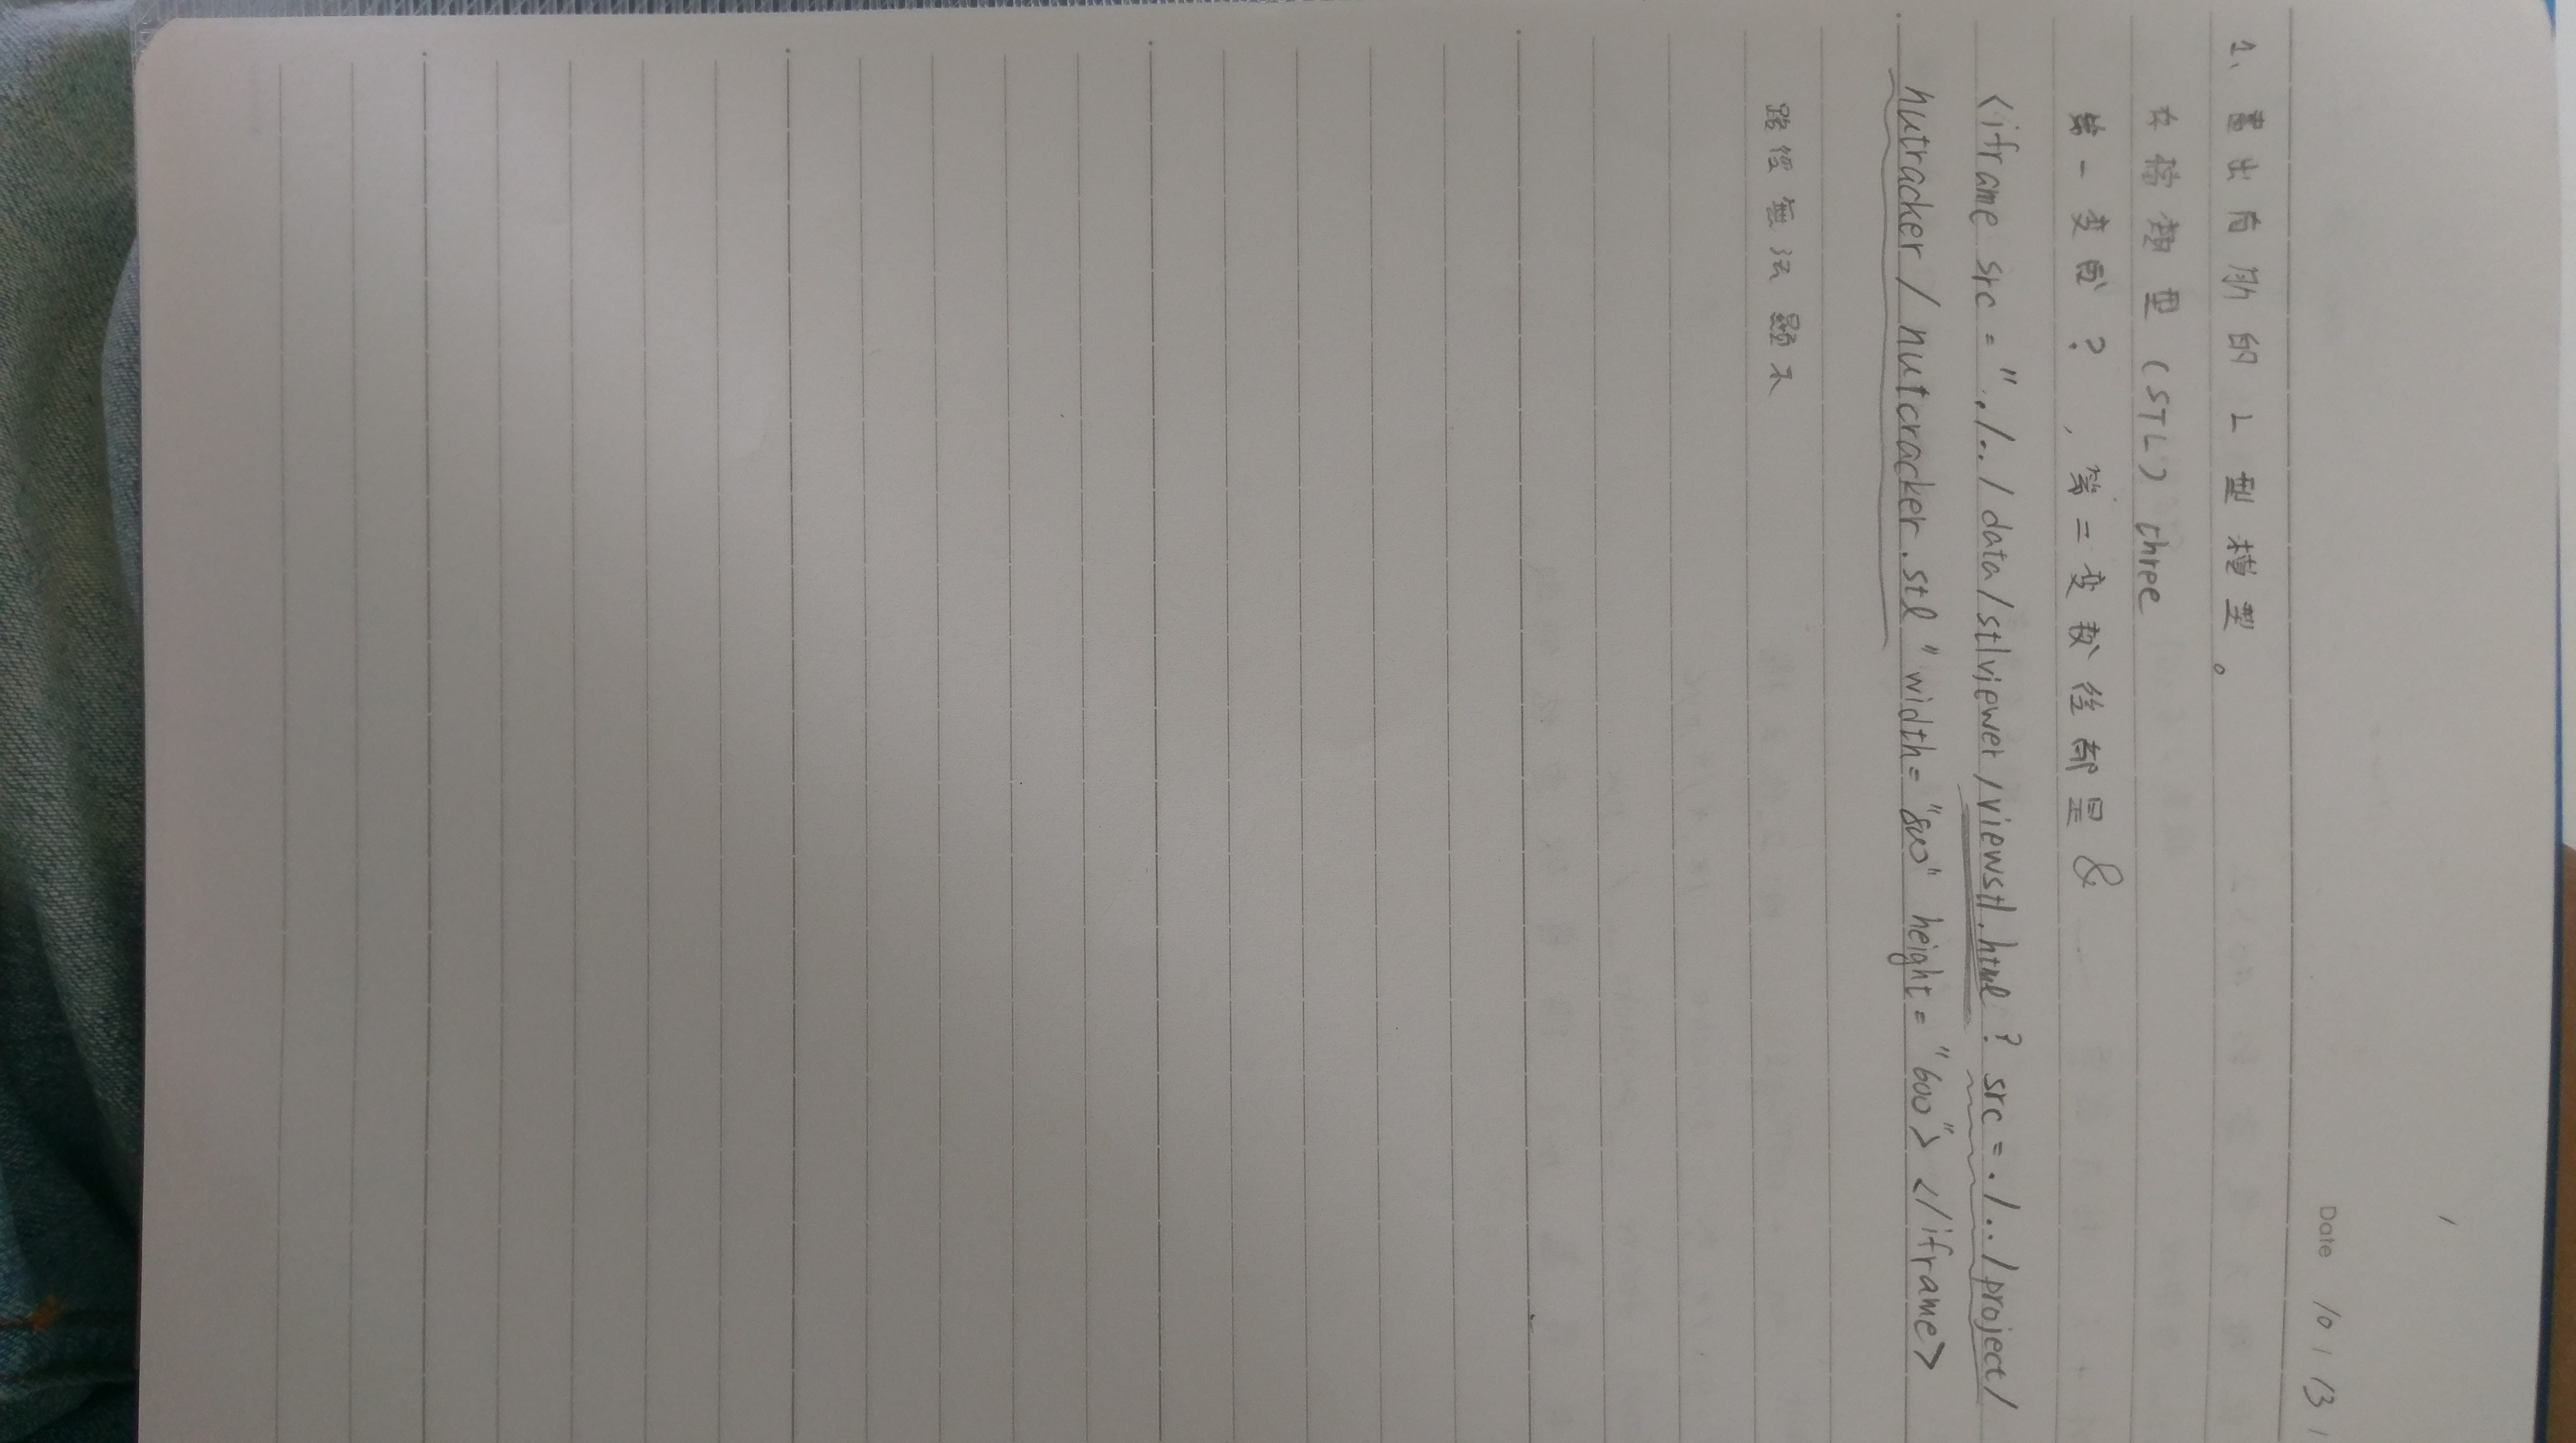 Date 10 / 13 /
1、畫出有階的L型模型。
在模型 (STL) three
第一變數?,第二變數後都是&
<iframe src = "./../data/stlviewer/viewstl.html?src=./../project/
nutracker/nutcracker.stl" width="800" height="600"></iframe>
路徑無法顯示